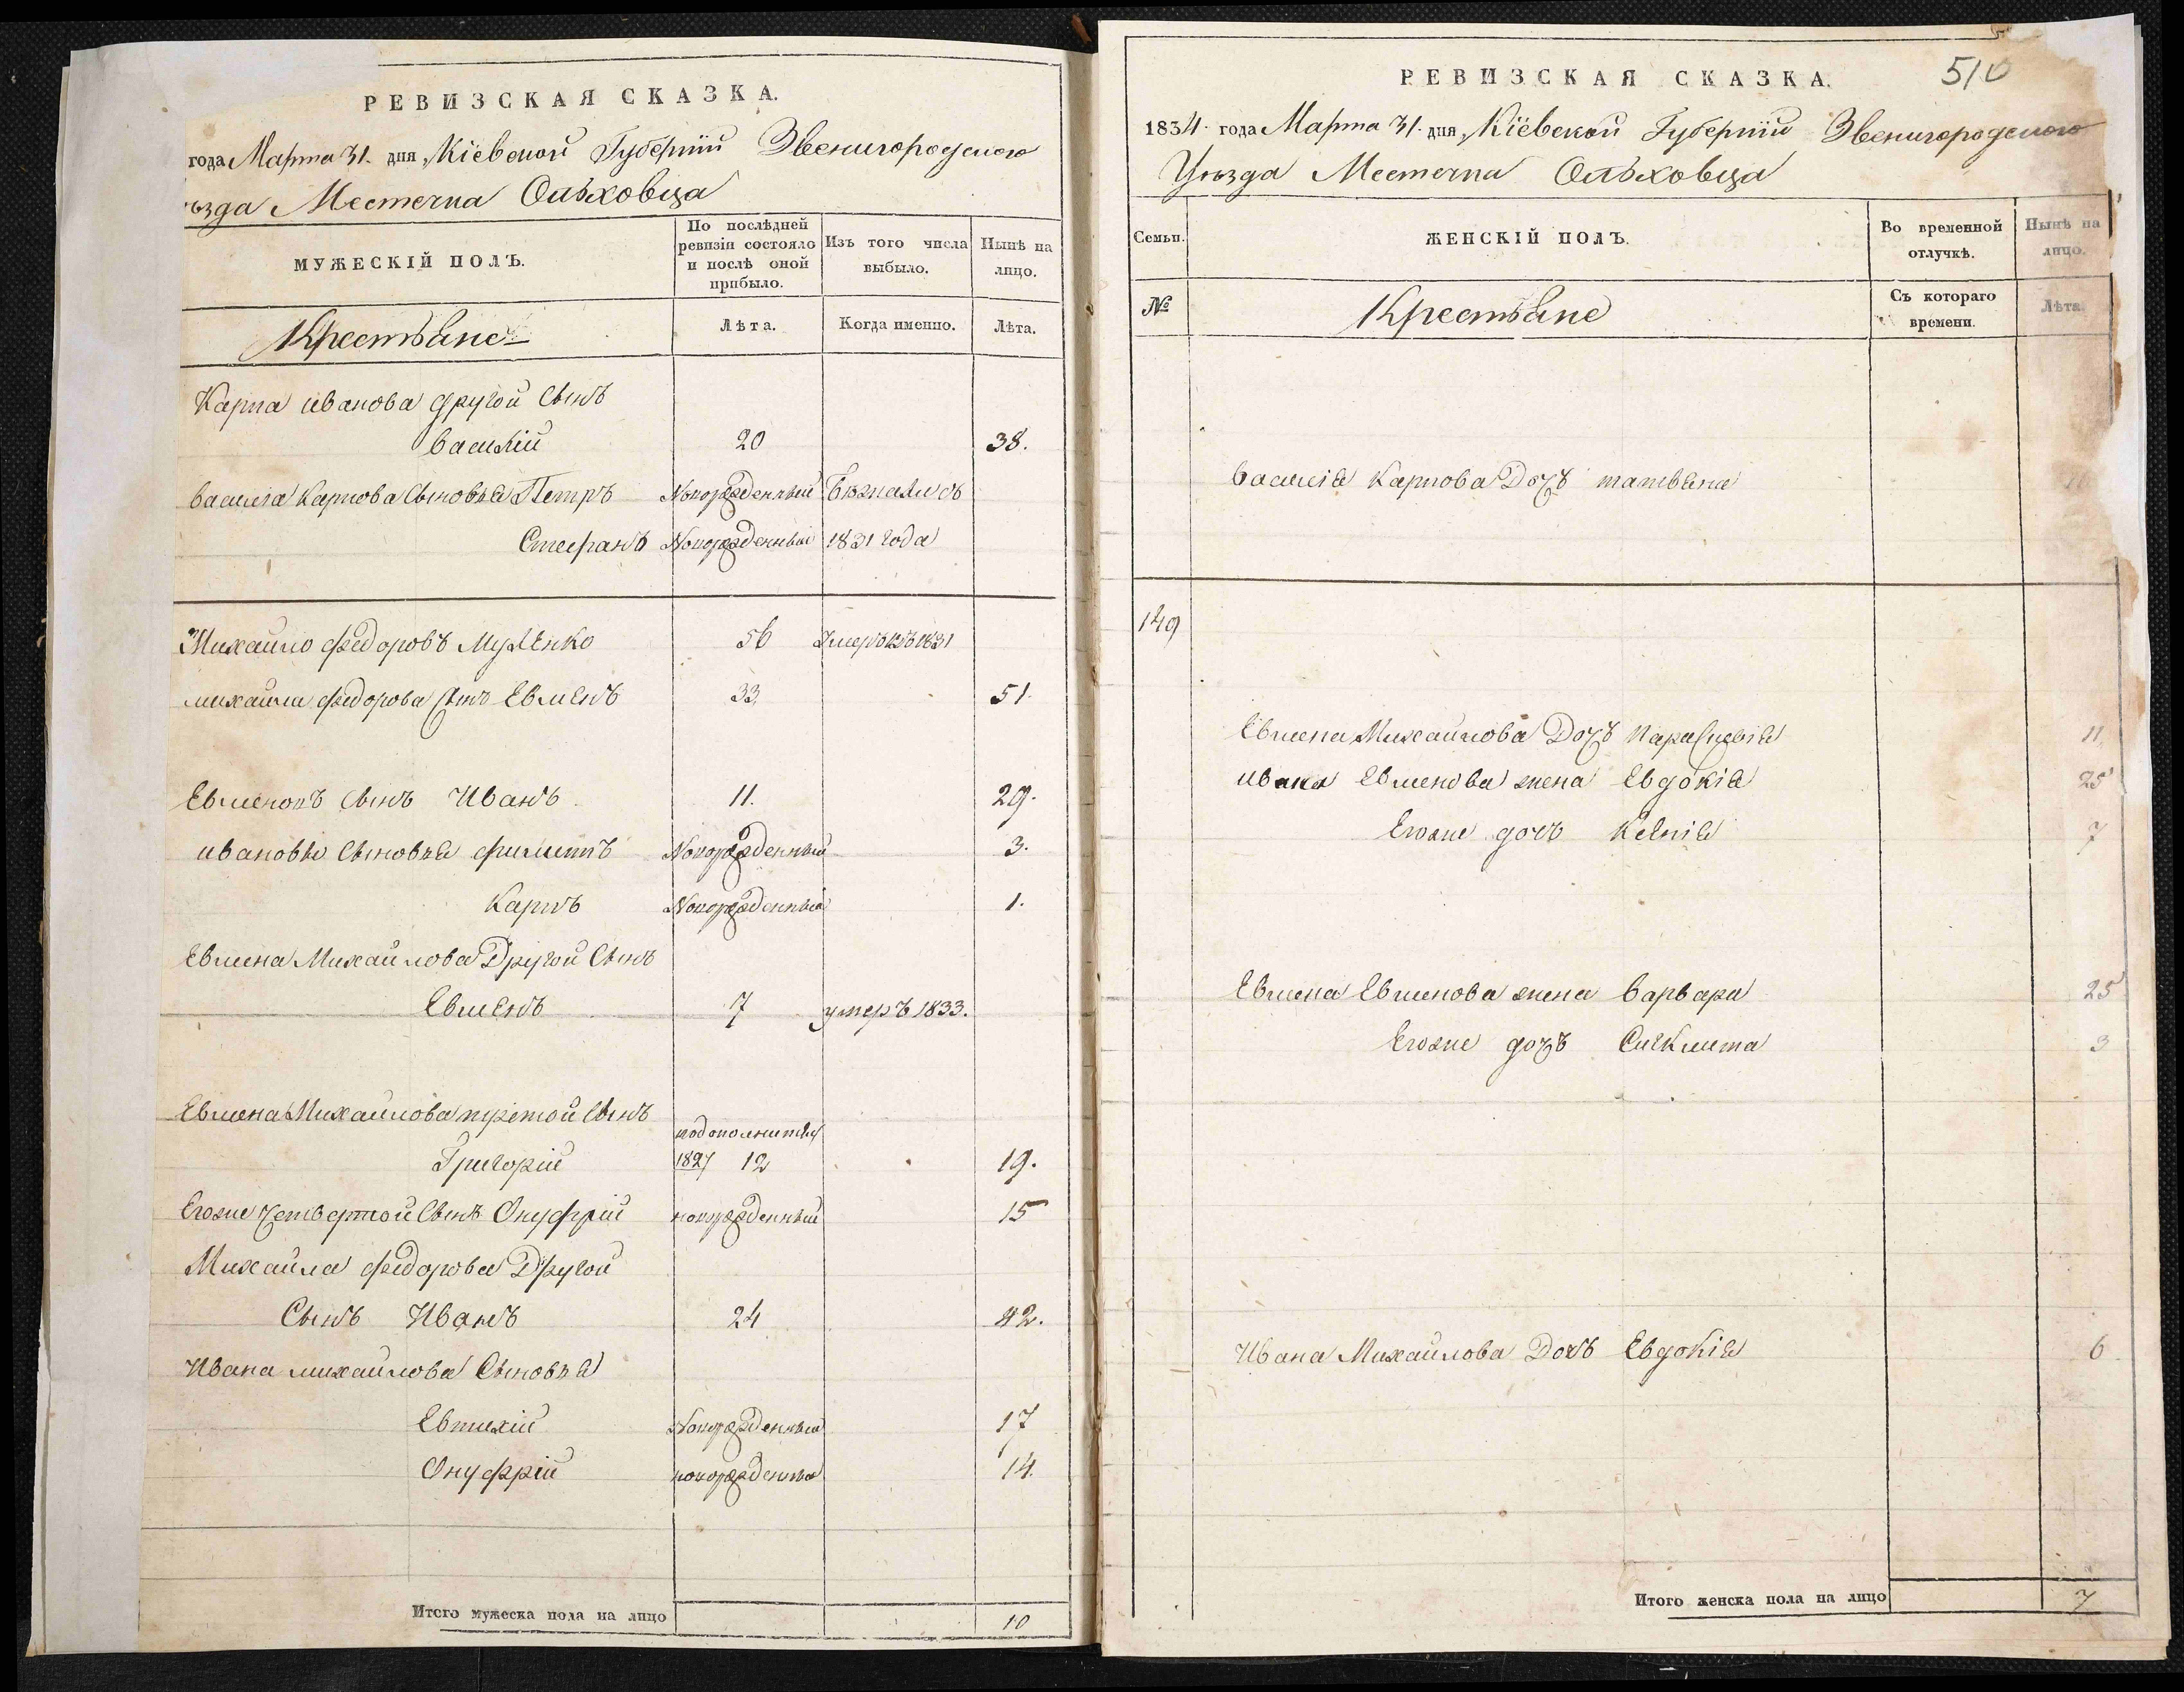 РЕВИЗСКАЯ СКАЗКА.
года Марта 31. дня, Кіевской Губерніи Звенигородского
ѣзда Местечка Ольховца
МУЖЕСКІЙ ПОЛЪ.
По послѣдней ревизіи состояло и послѣ оной прибыло.
Изъ того числа выбыло.
Нынѣ на лицо.
Крестьяне
Лѣта.
Когда именно.
Лѣта.
Карпа иванова другой Сынъ
василій 20 38.
василія Карпова Сыновья Петръ Новорожденный Бежались
Стефанъ Новорожденный 1831 года
Михайло федоровъ 56 Умеръ 1831
михайла федорова Сынъ Евменъ 33 51.
Евменовъ Сынъ Иванъ 11. 29.
ивановы Сыновья филиппъ Новорожденный 3.
Карпъ Новорожденный 1.
Евмена Михайлова Другой Сынъ
Евменъ 7 умеръ 1833.
Евмена Михайлова третой Сынъ
Григорій 1827 12 19.
Егоже Четвертой Сынъ Онуфрій новорожденный 15
Михайла федорова Другой
Сынъ Иванъ 24 42.
Ивана михайлова Сыновья
Евтихій Новорожденный 17
Онуфрій новорожденный 14.
Итого мужеска пола на лицо 10
510
РЕВИЗСКАЯ СКАЗКА.
1834. года Марта 31. дня, Кіевской Губерніи Звенигородского
Уѣзда Местечка Ольховца
Семьи.
ЖЕНСКІЙ ПОЛЪ.
Во временной отлучкѣ.
Нынѣ на лицо.
№
Крестьяне
Съ котораго времени.
Лѣта.
василія Карпова Дочь татьяна 16
149
Евмена Михайлова Дочь Параскевія 11
ивана Евменова жена Евдокія 25
Егоже дочь Ксенія 7
Евмена Евменова жена варвара 25
Егоже дочь 3
Ивана Михайлова Дочь Евдокія 6
Итого женска пола на лицо 7